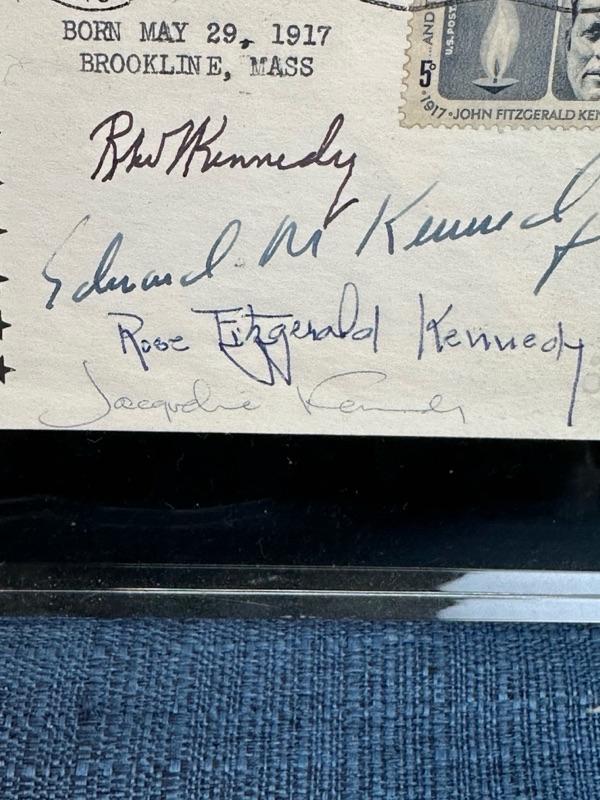 BORN MAY 29, 1917
BROOKLINE, MASS
...AND
U.S. POST
5¢
1917•JOHN FITZGERALD KEN
Kennedy
Edward M Kennedy
Rose Fitzgerald Kennedy
Jacqueline Kennedy